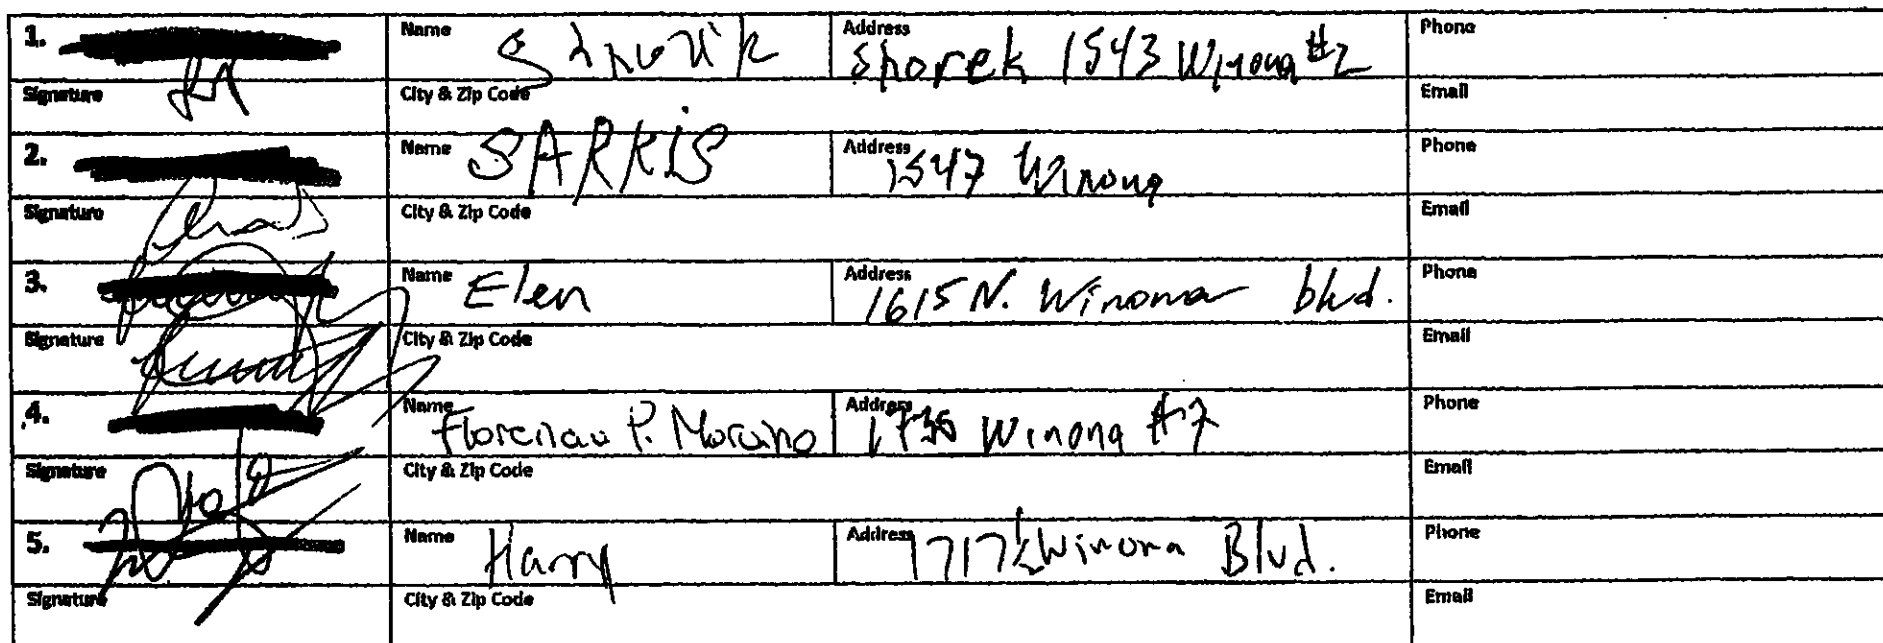 1. Name Address Shorek 1543 Winona #2 Phone
Signature City & Zip Code Email
2. Name SARKIS Address 1547 Winona Phone
Signature City & Zip Code Email
3. Name Elen Address 1615 N. Winona blvd. Phone
Signature City & Zip Code Email
4. Name P. Address Winona #7 Phone
Signature City & Zip Code Email
5. Name Harry Address 1717½ Winona Blvd. Phone
Signature City & Zip Code Email